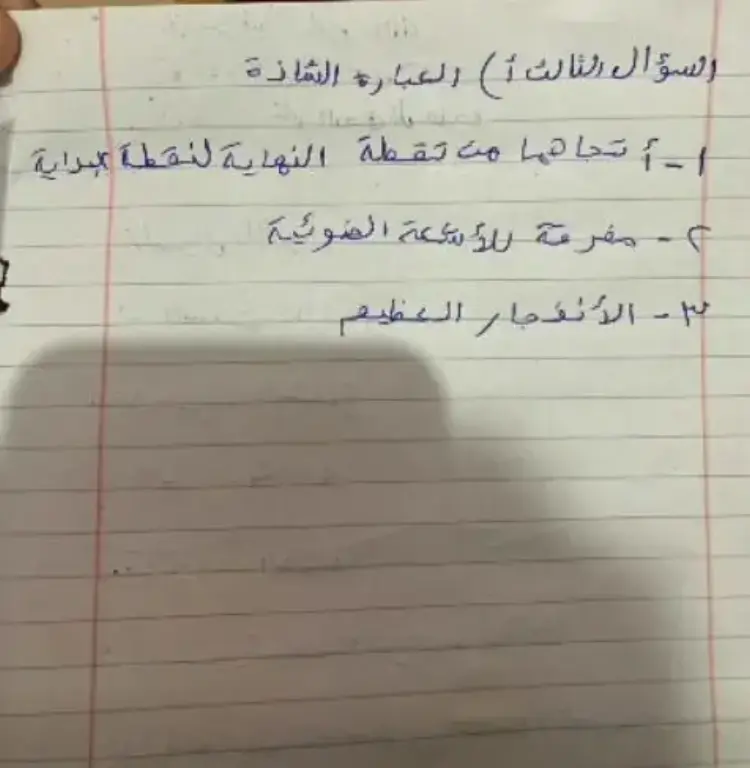 السؤال الثالث أ) العبارة الشاذة
١- أتجاهها من نقطة النهاية لنقطة بداية
٢- مفرقة للأشعة الضوئية
٣- الأنفجار العظيم